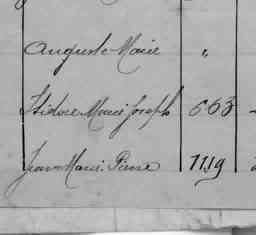 Auguste Marie "
Isidore Marie Joseph 663
Jean Marie Pierre 1119